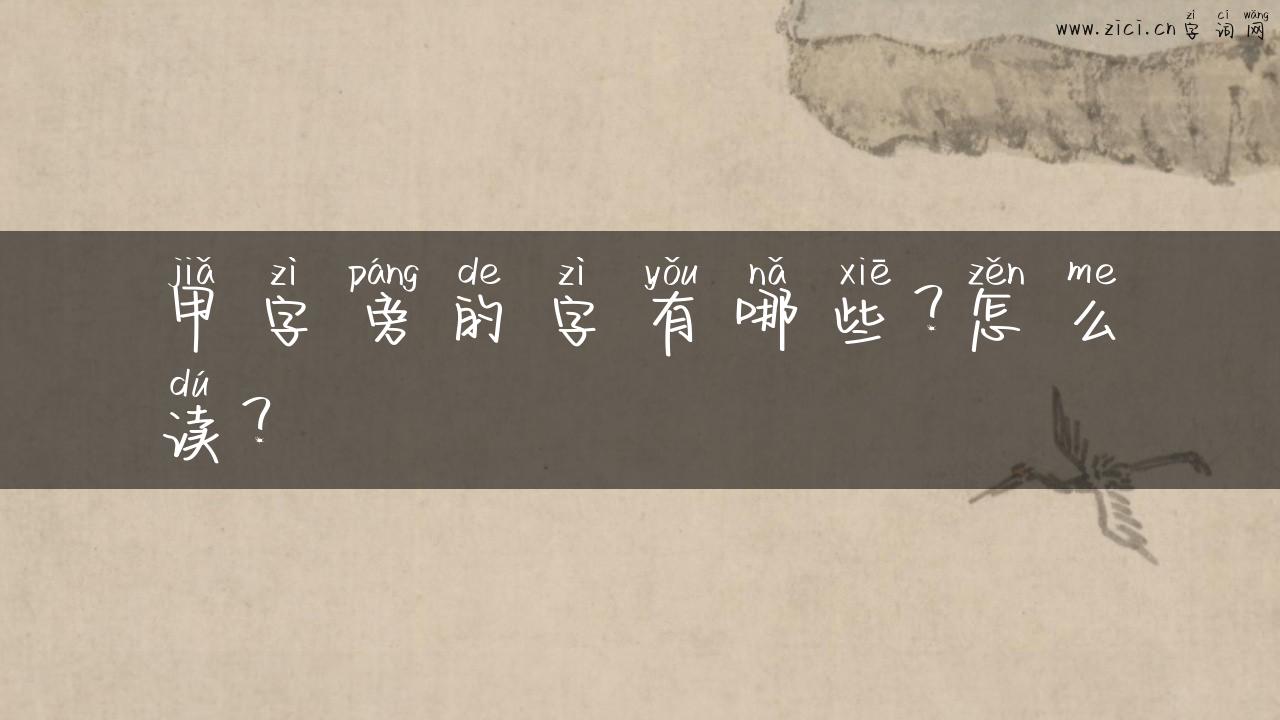 zì cí wǎng
www.zici.cn 字词网
jiǎ zì páng de zì yǒu nǎ xiē zěn me
甲字旁的字有哪些？怎么
dú
读？